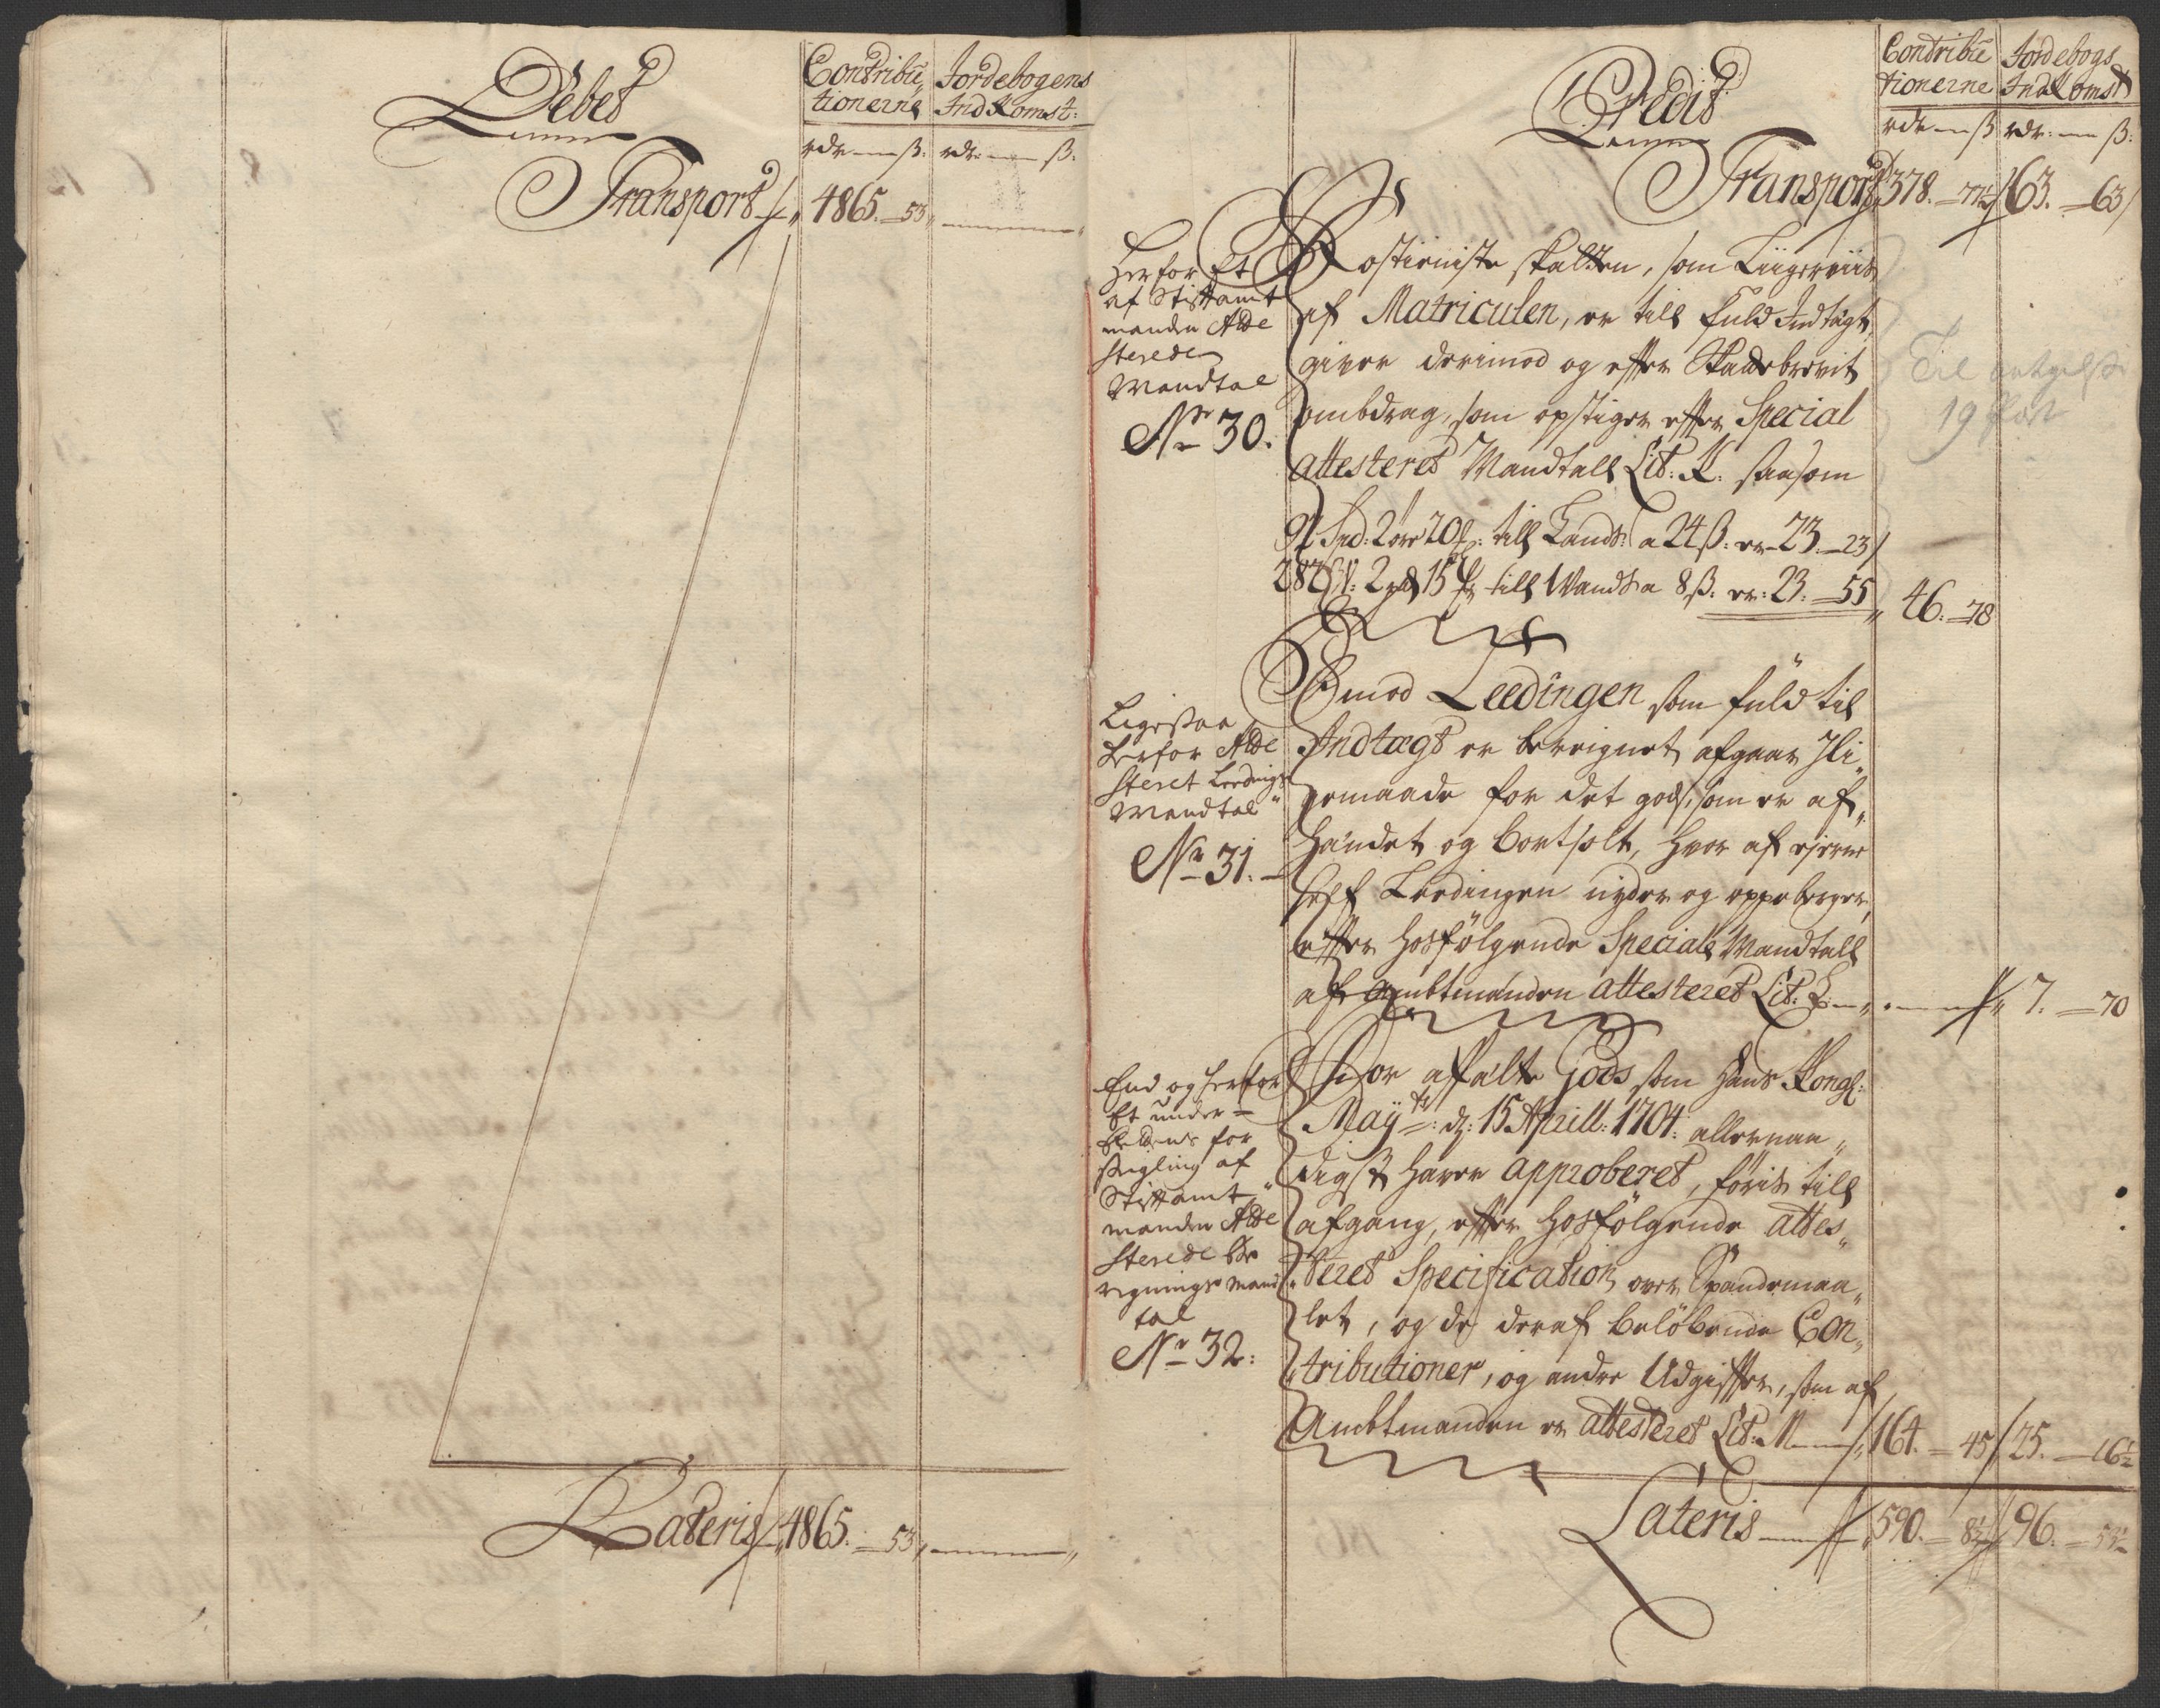 Debet
Contribu„
tionerne
Jordebogens
Ind Komst:
rdr — ß:
rdr: — ß:
Transport 4865. — 53
Lateris 4865. — 53
Credit
Contribu
tionerne
Jordebogs
Ind Komst
rdr — ß
rdr: — ß:
Transport 378. — 77½ 63. — 63
Herfor Et
af Stiftamt
manden Atte
sterede
Mandtal
No 30.
Rostieniste skatten, som Liigerviis
af Matriculen, er till fuld Indtægt,
giver derimod og efter Skattebrevit
ombdrag, som opstiger efter Special
attesteret Mandtall Lit: K. saasom
91 Spd: 2 ore 20 till Landt: a 24 ß: er 23. — 23
282 2 15 till Mandt a 8 ß: er: 23. — 55 46. — 78
Til
19
Ligesaa
herfor Atte
steret Leedings
Mandtal
No 31.
Imod Leedingen som fuld til
Indtægt er bereignet, afgaar Ili„
gemaade for det gods, som er af„
handet og bortsolt, hvor af ejerne
self Leedingen nyder og oppeberger,
efter hosfølgende Special Mandtall
af Ambtmanden attesteret Lit: L 7. — 70
End og herfor
Et under
for
segling af
Stiftamt„
manden Atte
sterede be
regnings Mand
tal
No 32:
For affalte Gods som Hans Kongl:
Mayts: d: 15 Aprill: 1704: allernaa„
digst haver approberet, føris till
afgang, efter hosfølgende attes„
teret Specification over Spandemaa„
let, og de deraf beløbende Con„
tributioner, og andre Udgifter, som af
Ambtmanden er attesteret Lit: M 164. — 45 25. — 16½
Lateris 590. — 8½ 96. — 53½